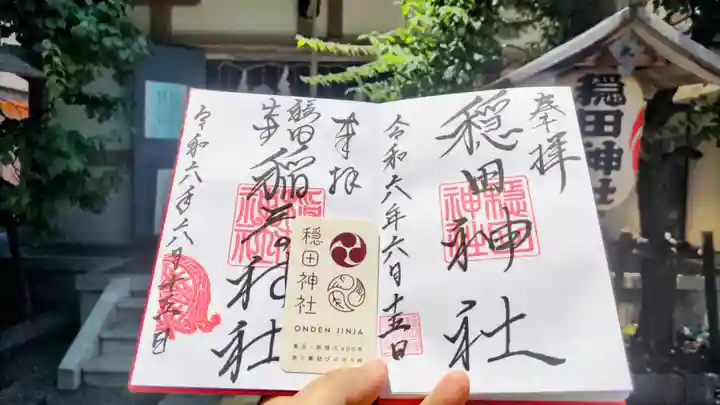 奉拝
穏田神社
令和六年六月十五日
奉拝
穏田
稲荷社
令和六年六月十五日
穏田神社
ONDEN JINJA
穏田神社